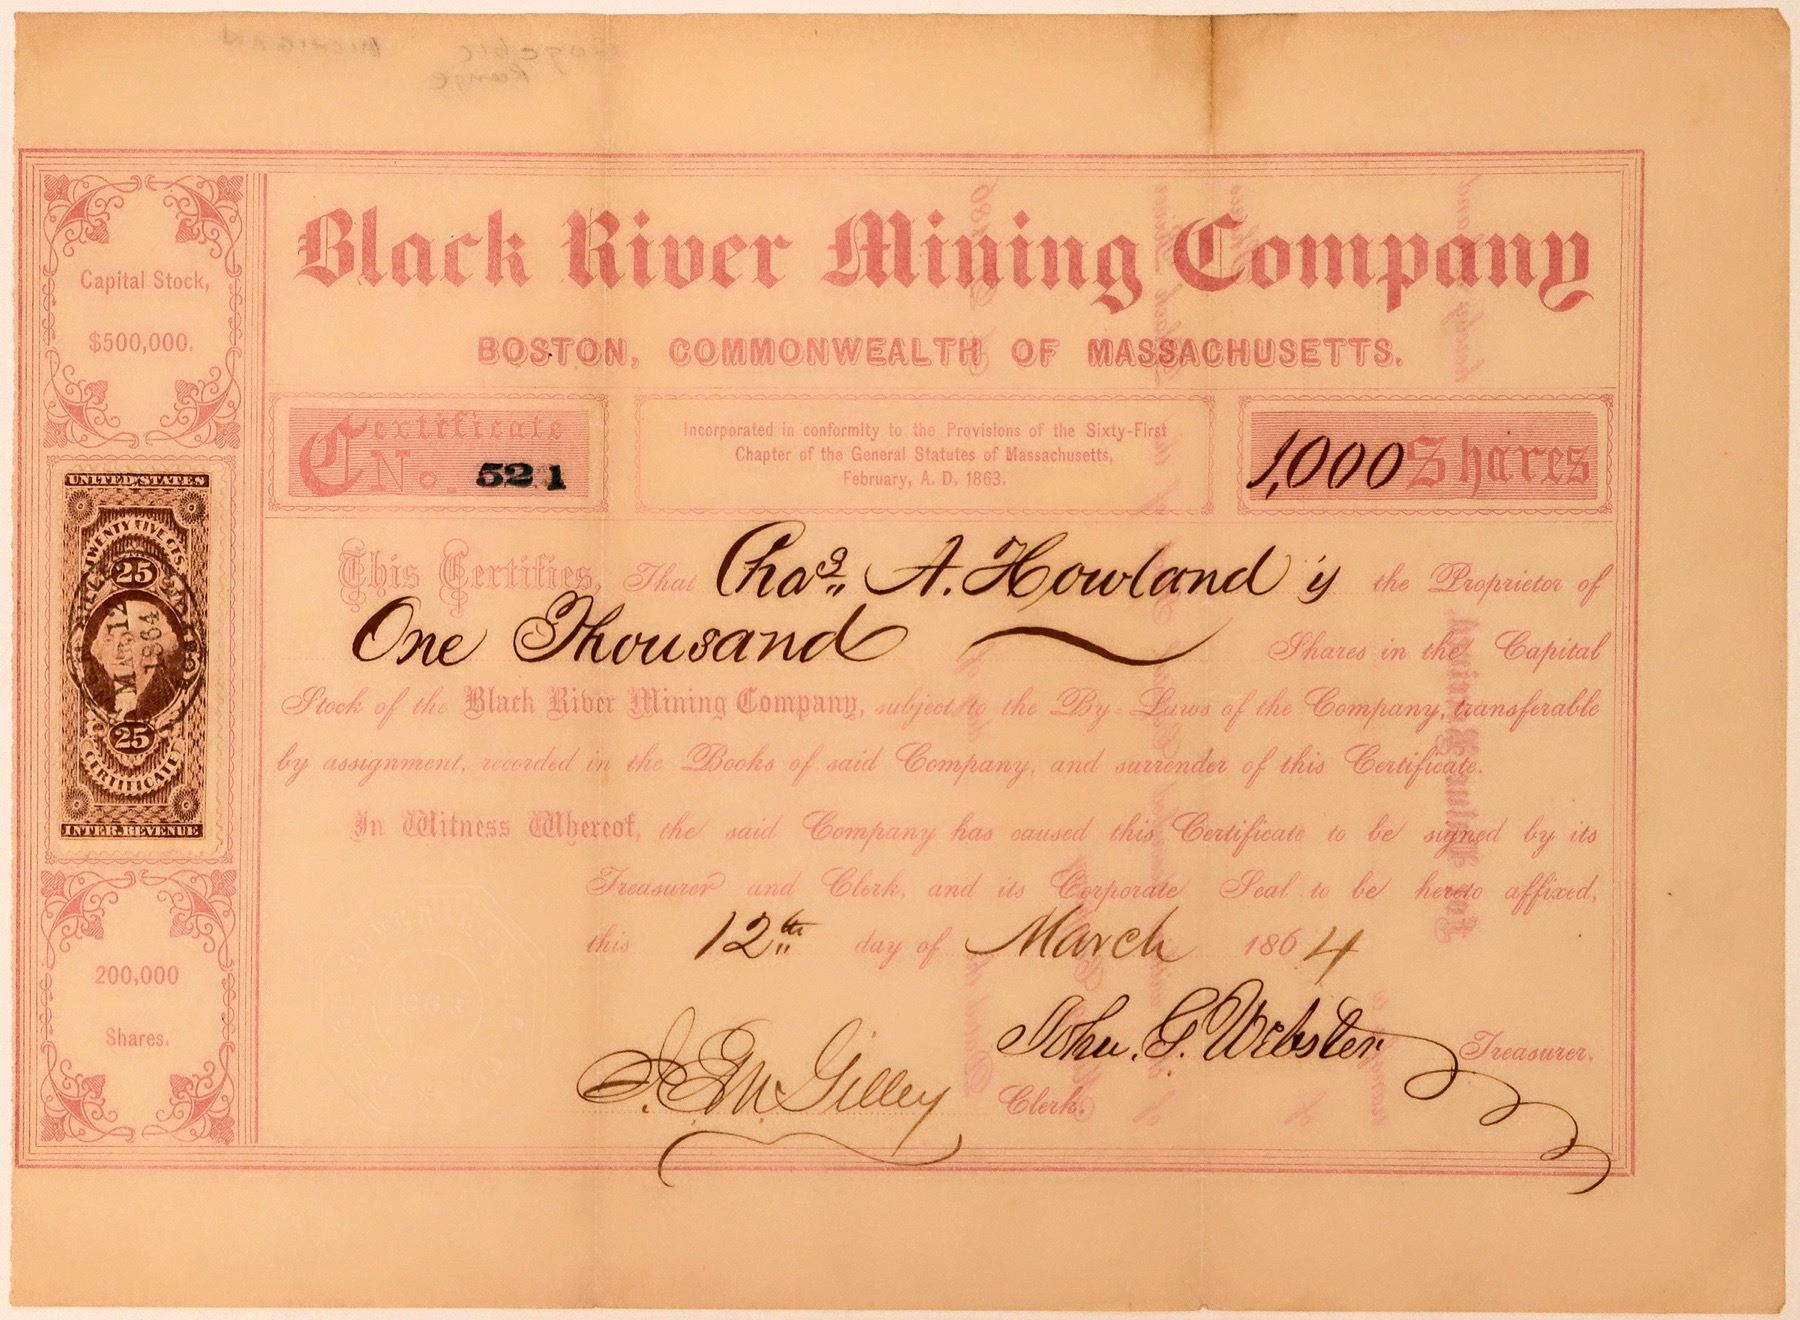 Black River Mining Company
BOSTON, COMMONWEALTH OF MASSACHUSETTS.
Capital Stock,
$500,000.
Certificate
No. 521
Incorporated in conformity to the Provisions of the Sixty-First
Chapter of the General Statutes of Massachusetts,
February, A. D. 1863.
1,000 Shares
UNITED STATES
TWENTY FIVE CTS.
25
MAR 12
1864
25
CERTIFICATE
INTER. REVENUE
This Certifies, That Chas. A. Howland is the Proprietor of
One Thousand Shares in the Capital
Stock of the Black River Mining Company, subject to the By-Laws of the Company, transferable
by assignment, recorded in the Books of said Company, and surrender of this Certificate.
In Witness Whereof, the said Company has caused this Certificate to be signed by its
Treasurer and Clerk, and its Corporate Seal to be hereto affixed,
this 12th day of March 1864
200,000
Shares.
John. G. Webster Treasurer.
J. E. M. Gilley Clerk.